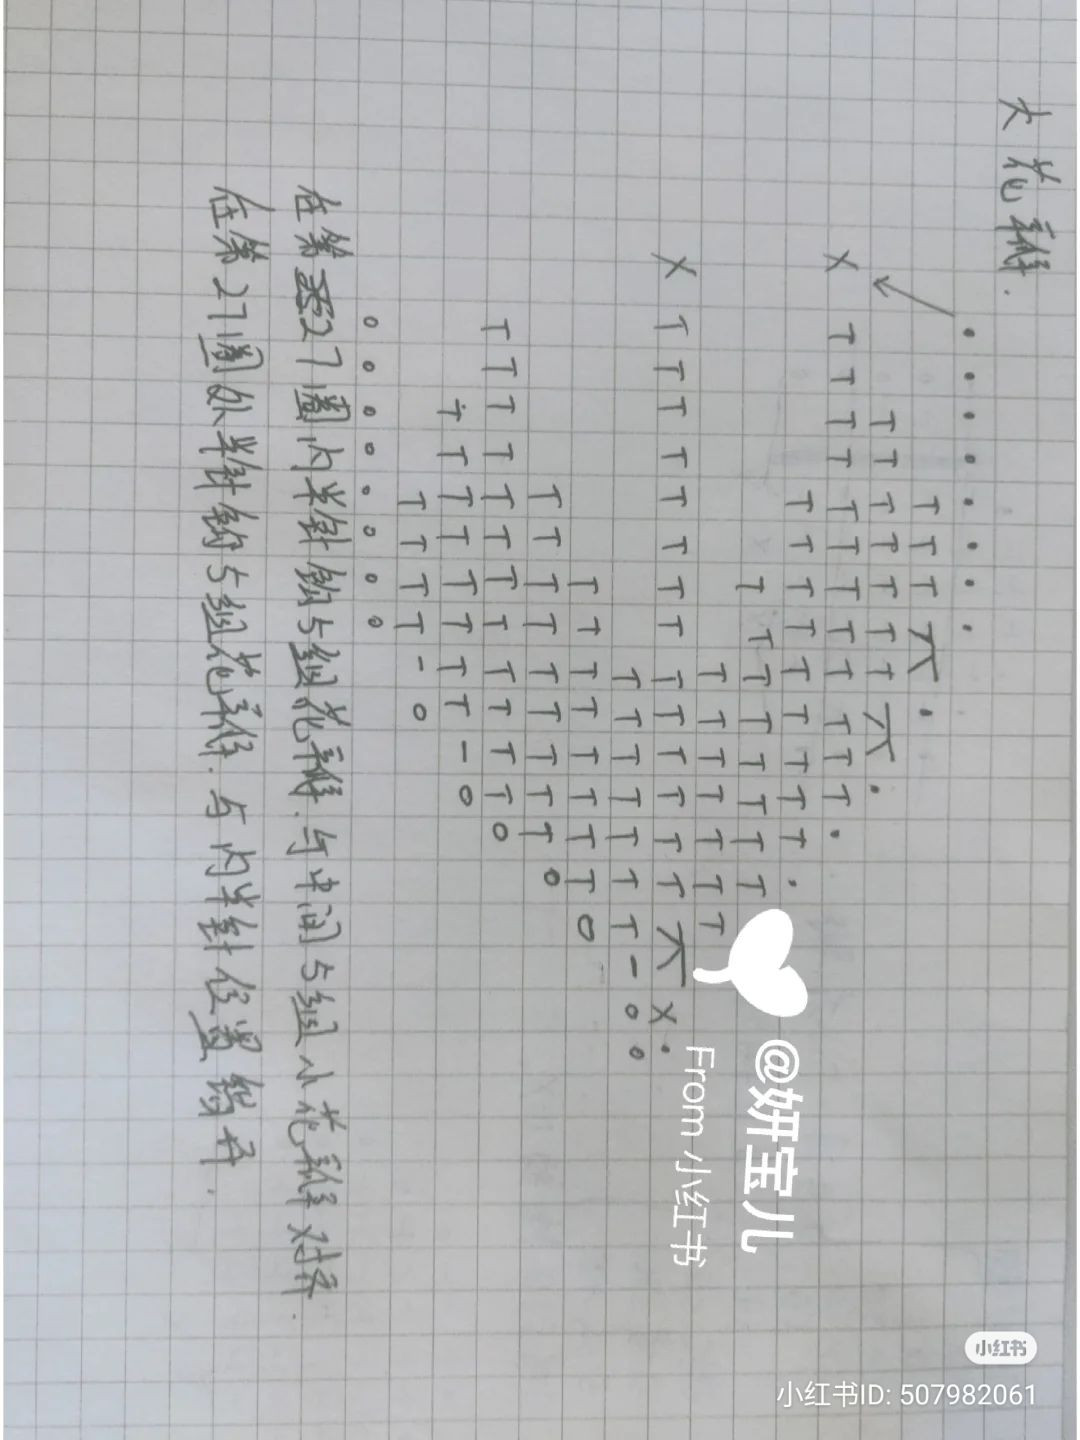 大花瓣.
• • • • • • • •
T T T •
T T T T T T T •
X T T T T T T T T T T T T •
T T T T T T T T T •
T T T T T T T T
T T T T T T T
X T T T T T T T T T T T T T T X •
T T T T T T T - o o
T T T T T T T T o
T T T T T T T T T o
T T T T T T T T T T T T o
T T T T T T T T - o
T T T T - o
o o o o o o o o
在第27圈内半针钩5组花瓣.与中间5组小花瓣对齐.
在第27圈外半针钩5组花瓣.与内半针位置错开.
@妍宝儿
From 小红书
小红书
小红书ID: 507982061